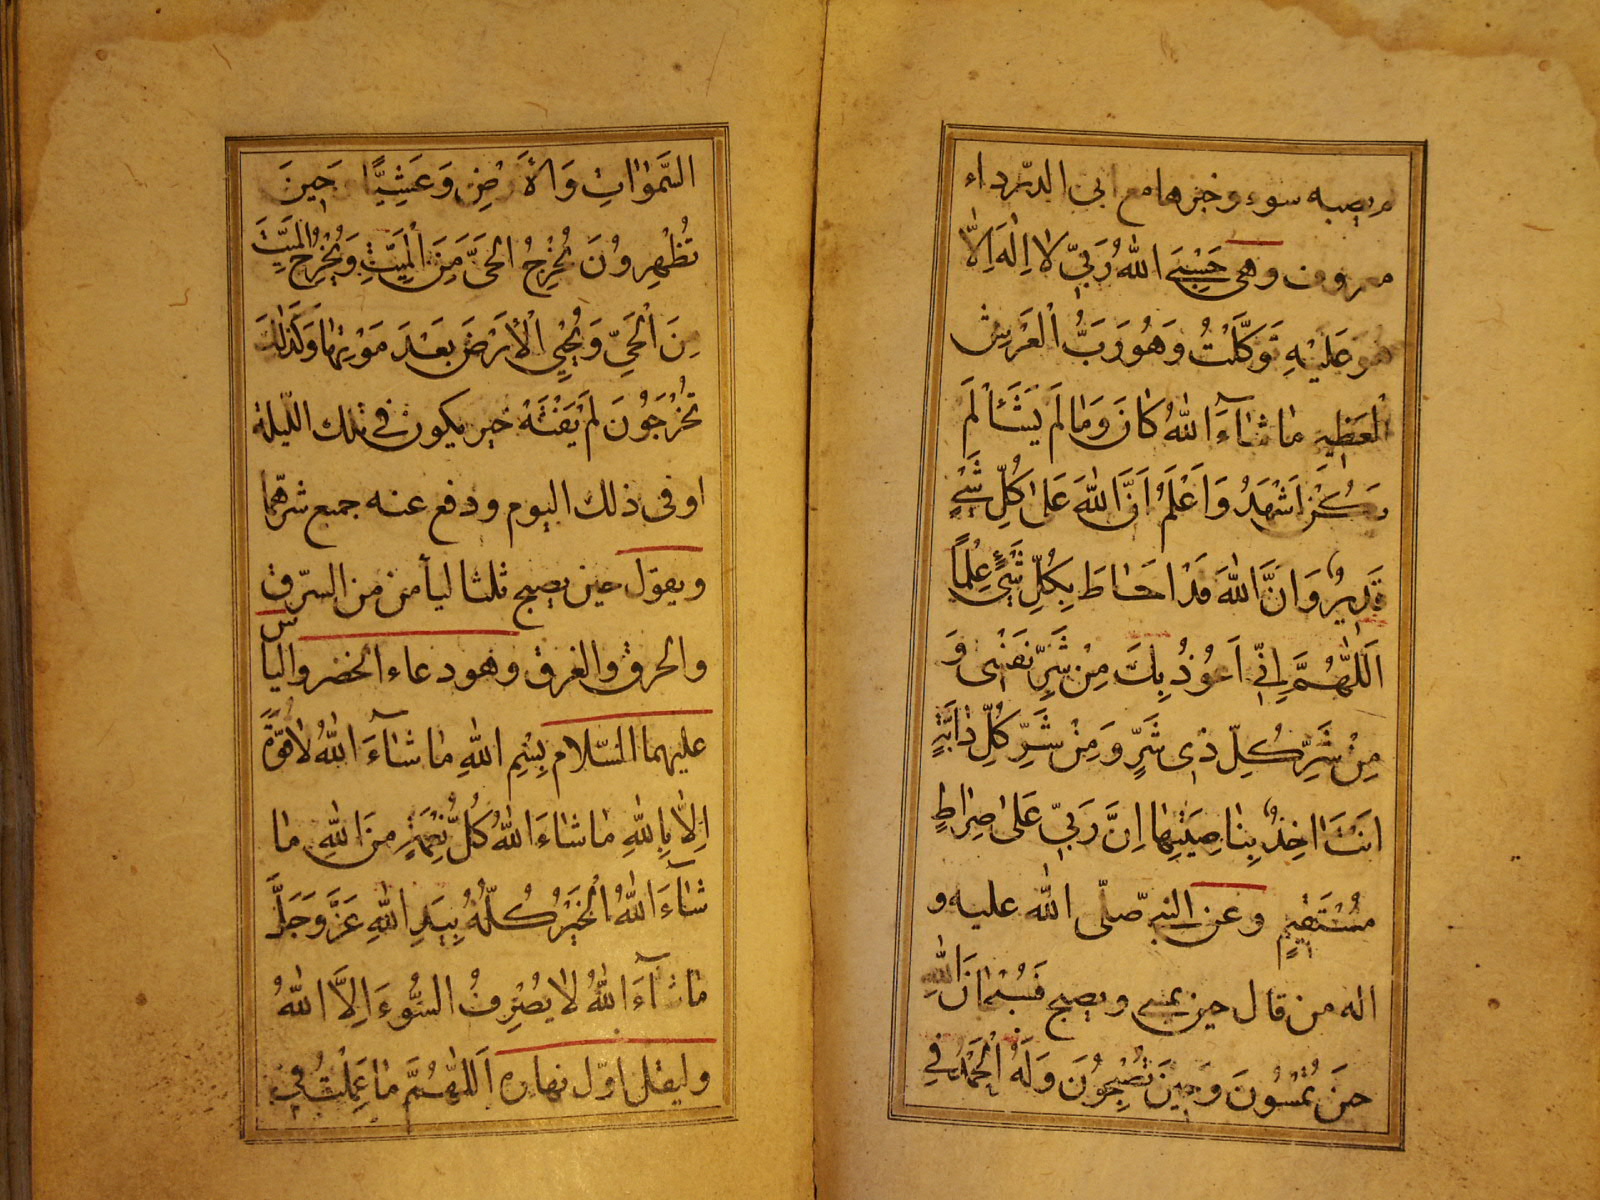 يصبه سوء وخبرها مع ابى الدّرداء
معروف وهى حَسْبِيَ اللهُ رَبّيِ لا اِلٰهَ اِلّا
هو عَلَيْهِ تَوَكَّلْتُ وَهُوَ رَبُّ الْعَرْشِ
الْعَظِيمِ مٰا شٰآءَ اللهُ كٰانَ وَمٰا لَمْ يَشَأْ لَمْ
يَكُنْ اَشْهَدُ وَاَعْلَمُ اَنَّ اللهَ عَلىٰ كُلِّ شَيْءٍ
قَدِيرٌ وَاَنَّ اللهَ قَدْ اَحٰاطَ بِكُلِّ شَيْءٍ عِلْماً
اَللّٰهُمَّ اِنّيِ اَعُوذُ بِكَ مِنْ شَرِّ نَفْسي وَ
مِنْ شَرِّ كُلِّ ذي شَرٍّ وَمِنْ شَرِّ كُلِّ دٰابَّةٍ
اَنْتَ اٰخِذٌ بِنٰاصِيَتِهٰا اِنَّ رَبّيِ عَلىٰ صِرٰاطٍ
مُسْتَقِيمٍ وعن النبى صلّى الله عليه و
اله من قال حين يمسى ويصبح فَسُبْحٰانَ اللهِ
حينَ تُمْسُونَ وَحِينَ تُصْبِحُونَ وَلَهُ الْحَمْدُ فِي
السَّمٰوٰاتِ وَالْأَرْضِ وَعَشِيًّا وَحِينَ
تُظْهِرُونَ يُخْرِجُ الْحَيَّ مِنَ الْمَيِّتِ وَيُخْرِجُ الْمَيِّتَ
مِنَ الْحَيِّ وَيُحْيِي الْأَرْضَ بَعْدَ مَوْتِهٰا وَكَذٰلِكَ
تُخْرَجُونَ لَمْ يَفُتْهُ خير يكون في تلك اللّيلة
او فى ذلك اليوم ودفع عنه جميع شرّهما
ويقول حين يصبح ثلثا ليأمن من السرّق
والحرق والغرق وهو دعاء الخضر والياس
عليهما السّلام بِسْمِ اللهِ مٰا شٰآءَ اللهُ لٰا قُوَّةَ
اِلّٰا بِاللهِ مٰا شٰاءَ اللهُ كُلُّ نِعْمَةٍ مِنَ اللهِ مٰا
شٰآءَ اللهُ الْخَيْرُ كُلُّهُ بِيَدِ اللهِ عَزَّ وَجَلَّ
مٰا شٰآءَ اللهُ لٰا يَصْرِفُ السُّوءَ اِلَّا اللهُ
وليقل اوّل نهاره اَللّٰهُمَّ مٰا عَمِلْتُ في